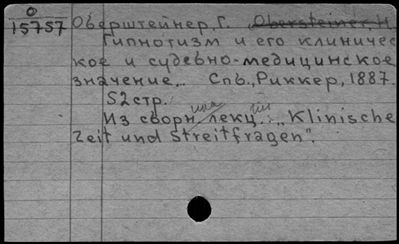 О
15757
Оберштейнер, Г. Obersteiner, H.
Гипнотизм и его клиничес
кое и судебно-медицинское
значение,.. Спб., Риккер, 1887.
52 стр.
Из сборн. лекц. „Klinische
Zeit und Streitfragen".